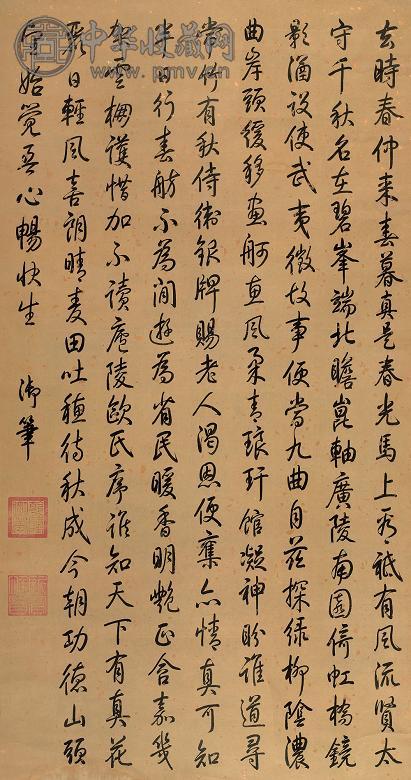 中华收藏网
去時春仲来春暮真是春光馬上看祗有風流賢太
守千秋名在碧峯端北瞻崑軸廣陵南園倚虹橋鏡
影涵設使武夷徵故事便當九曲自茲探緑柳陰濃
曲岸頭緩移畫舸恵風柔青琅玕館凝神盼誰道尋
常竹有秋侍衛銀牌賜老人恩便亦情真可知
半日行春舫不為閒遊為省民暖香明艶正含嘉幾
架雲棚護惜加不讀廬陵歐氏序誰知天下有真花
日輕風喜朗晴麦田吐穗待秋成今朝功德山頭
望始覺吾心暢快生 御筆